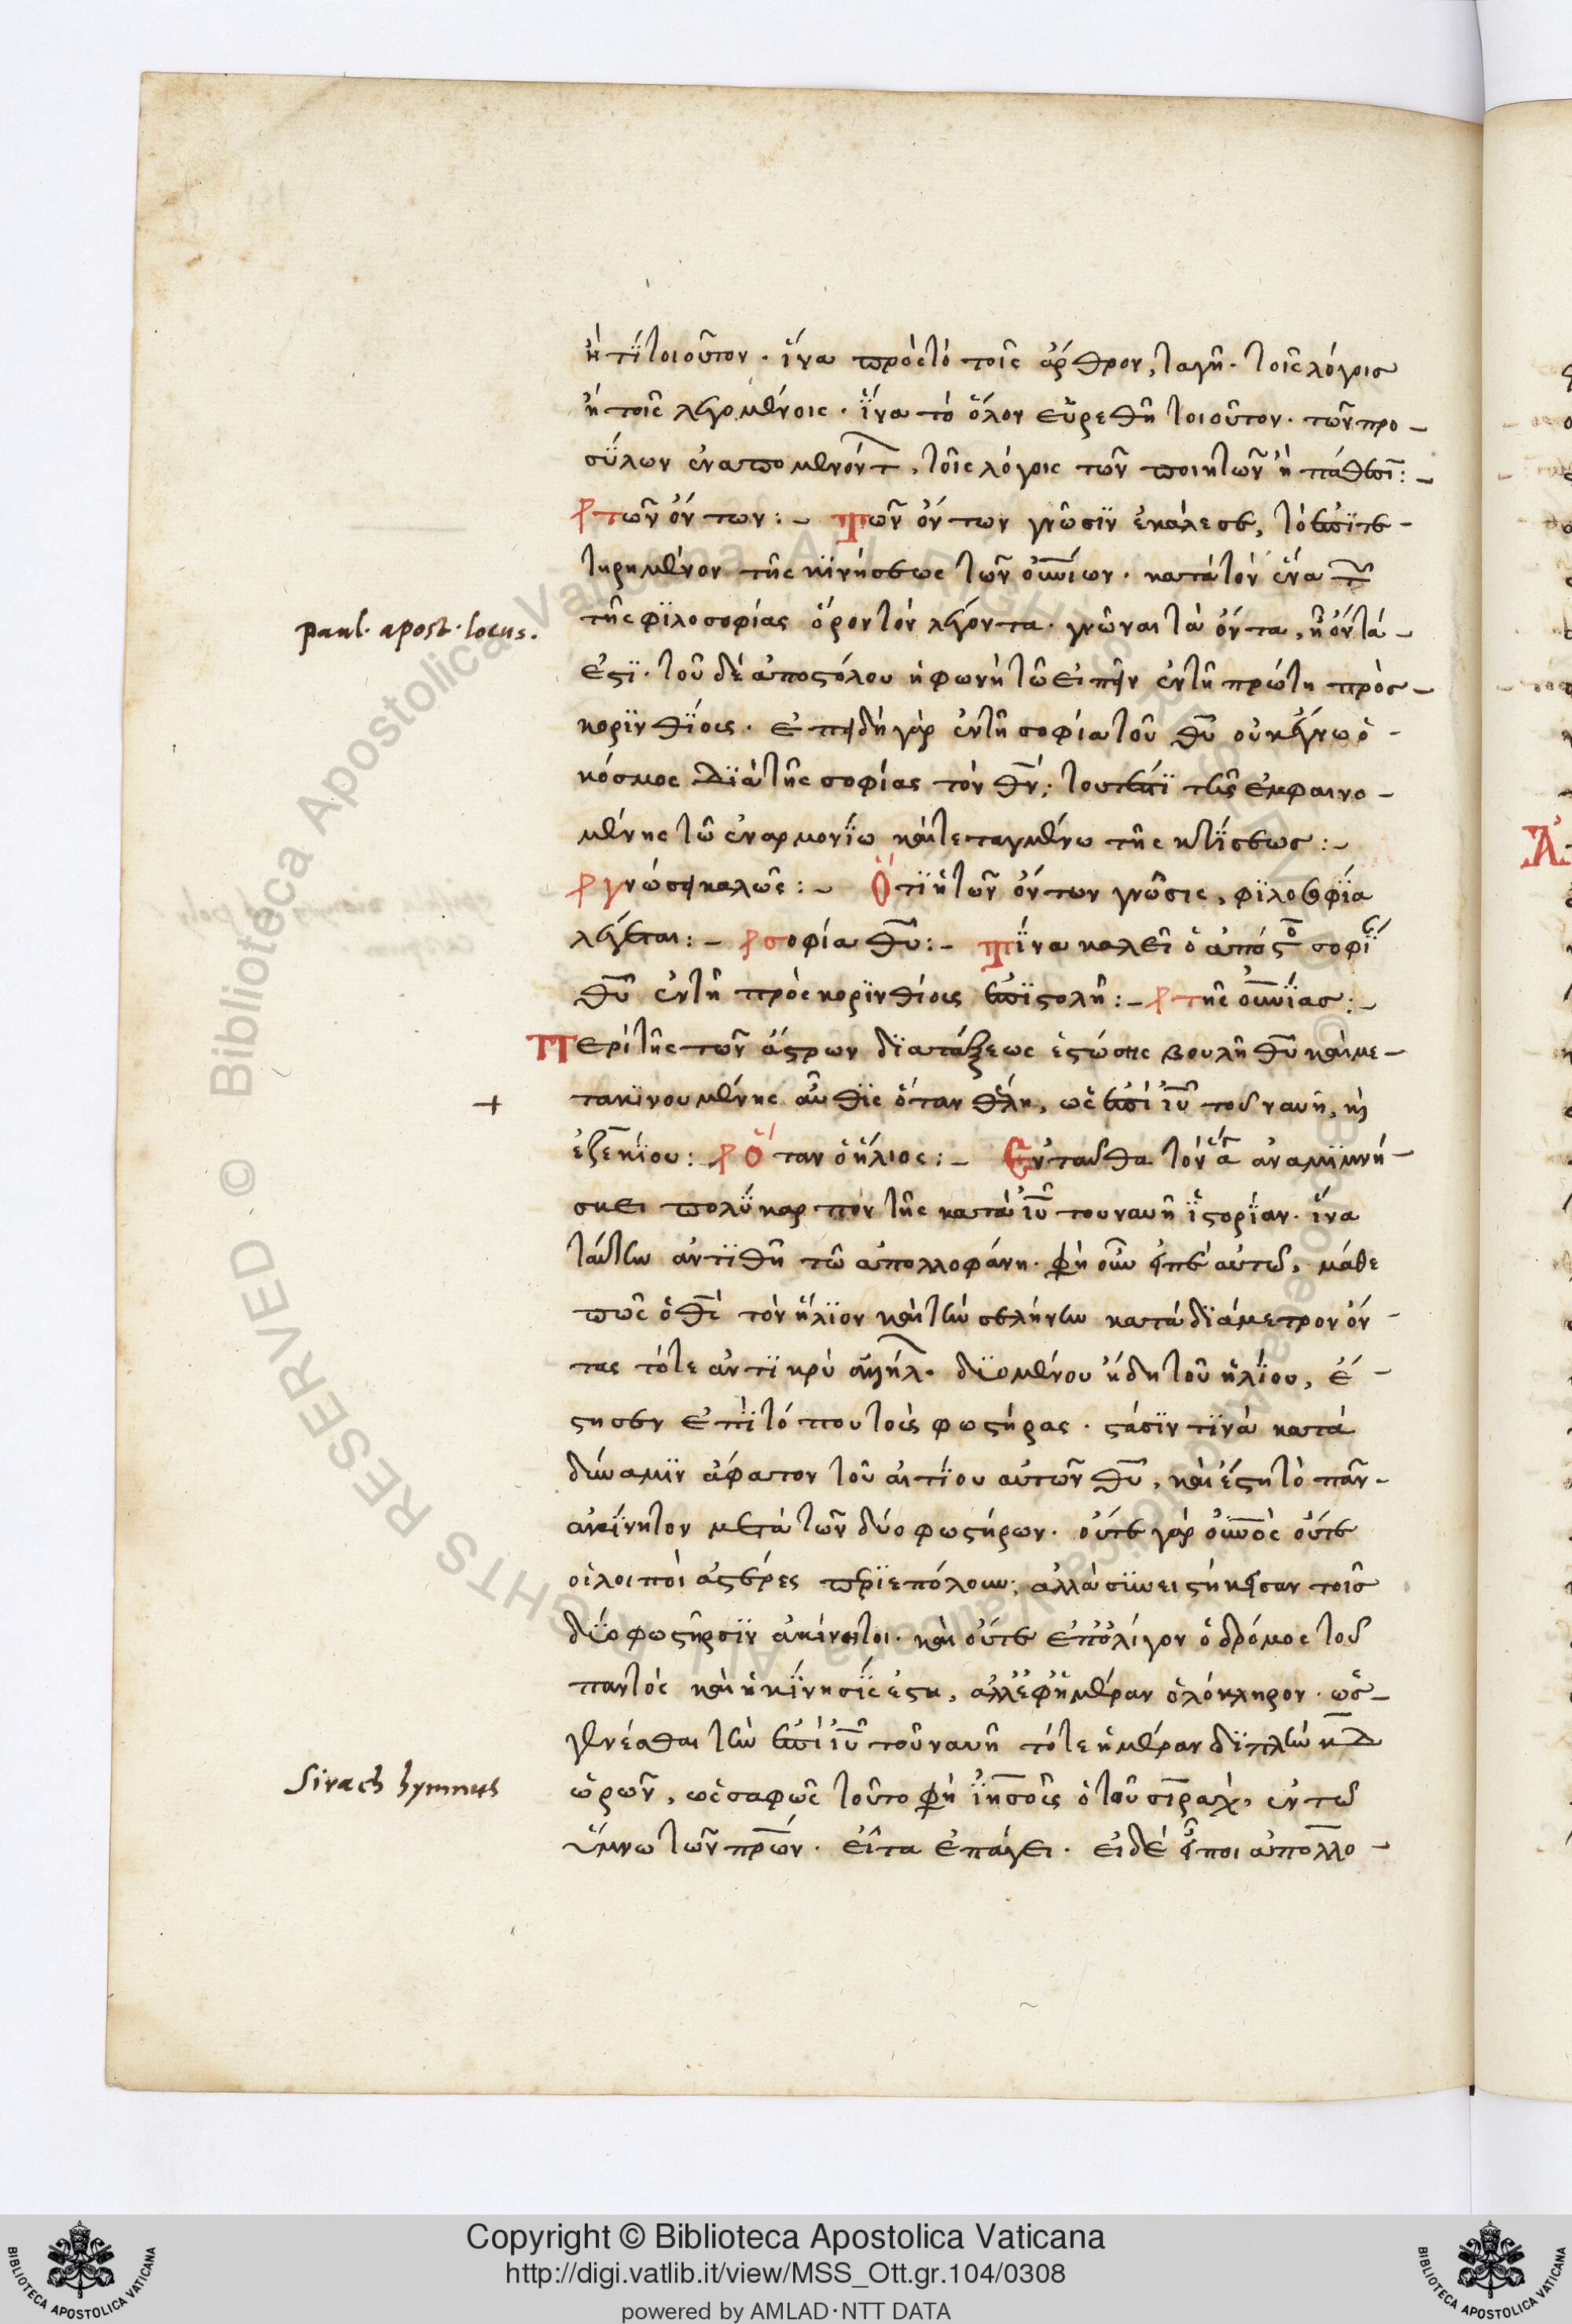 ἢ τι τοιοῦτον· ἵνα πρὸς τὸ τοῖς ἄρθρον, ταγῇ· τοῖς λόγοις
ἢ τοῖς λεγομένοις· ἵνα τὸ ὅλον εὑρεθῇ τοιοῦτον· τῶν προ-
σύλων ἐναπομενόντ, τοῖς λόγοις τῶν ποιητῶν ἢ πάθεσι:-
τῶν ὄντων:- Τῶν ὄντων γνῶσιν ἐκάλεσε, τὸ ἐπιτε-
τηρημένον τῆς κινήσεως τῶν οὐνίων· κατὰ τὸν ἕνα τ
τῆς φιλοσοφίας ὅρον τὸν λέγοντα· γνῶναι τὰ ὄντα, ᾗ ὄντα
paul. apost. locus.
ἐστι· τοῦ δὲ ἀποστόλου ἡ φωνὴ τῶ εἰπεῖν ἐν τῇ πρώτη πρὸς-
κορινθίοις· ἐπειδὴ γὰρ ἐν τῇ σοφία τοῦ θυ οὐκ ἔγνω ὁ-
κόσμος διὰ τῆς σοφίας τὸν θν· τουτέστι τῆς ἐμφαινο-
μένης τῶ ἐναρμονίω καὶ τεταγμένω τῆς κτίσεως:-
γνώσει καλῶς:- Ὅτι ἡ τῶν ὄντων γνῶσις, φιλοσοφία
λέγεται:- σοφία θυ:- Τίνα καλεῖ ὁ ἀπόστο σοφί
θυ ἐν τῇ πρὸς κορινθίοις ἐπιστολῇ:- τῆς οὐνίας:-
Περὶ τῆς τῶν ἄστρων διατάξεως ἑστώσης βουλῇ θυ καὶ με-
τακινουμένης αὖθις ὅταν θέλη, ὡς ἐπὶ ιυ τοῦ ναυῆ, κὶ
+
ἐζεκίου: Ὅταν ὁ ἥλιος:- Ἐνταῦθα τὸν ἅ ἀναμιμνή-
σκει πολύκαρπον τῆς κατὰ ιυ του ναυῆ ἱστορίαν· ἵνα
ταύτην ἀντιθῇ τῶ ἀπολλοφάνη· φη οὖν εἰπὲ αὐτῶ, μάθε
πῶς ὁ θς τὸν ἥλιον καὶ τὴν σελήνην κατὰ διάμετρον ὄν-
τας τότε ἀντικρὺ ἀλλήλ· δυομένου ἤδη τοῦ ἡλίου, ἔ-
στησεν ἐπὶ τόπου τοὺς φωστῆρας· στάσιν τινὰ κατὰ
δύναμιν ἄφατον τοῦ αἰτίου αὐτῶν θυ, καὶ ἔστη τὸ πᾶν-
ἀκίνητον μετὰ τῶν δύο φωστήρων· οὔτε γὰρ οὐνὸς οὔτε
οἱ λοιποὶ ἀστέρες περιεπόλουν· ἀλλὰ συνειστήκησαν τοῖς
δύο φωστῆρσιν ἀκίνητοι· καὶ οὔτε ἐπ' ὀλίγον ὁ δρόμος τοῦ
παντὸς καὶ ἡ κίνησις ἔστη, ἀλλ' ἐφ' ἡμέραν ὁλόκληρον· ὡς-
γενέσθαι τὴν ἐπὶ ιυ τοῦ ναυῆ τότε ἡμέραν διπλὴν κδ
ὡρῶν, ὡς σαφῶς τοῦτο φη ἰησοῦς ὁ τοῦ σιραχ, ἐν τῶ
Sirach hymnus
ὕμνω τῶν πρων· εἶτα ἐπάγει· εἰ δὲ εἴποι ἀπολλο-
Copyright © Biblioteca Apostolica Vaticana
http://digi.vatlib.it/view/MSS_Ott.gr.104/0308
powered by AMLAD·NTT DATA